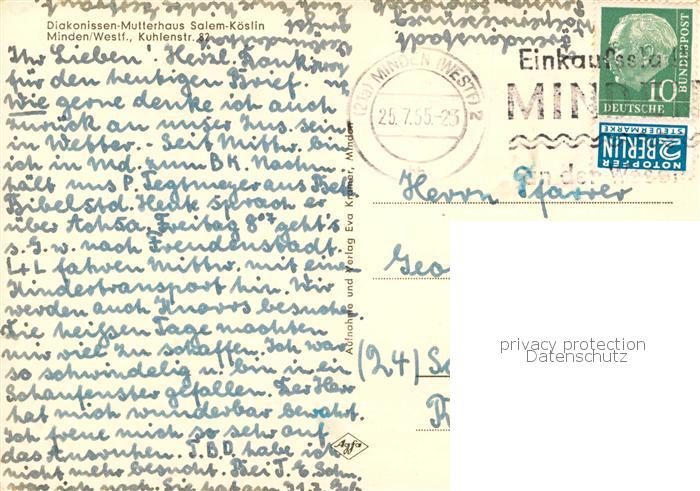 Diakonissen-Mutterhaus Salem-Köslin
Minden/Westf., Kuhlenstr. 82
Ihr Lieben! Herzl. Dank
für den heutigen Brief.
wie gerne denke ich auch
zurück an unser Zus. sein
in Wetter. - Seit Mittw. bin
ich in Md. zum B.K. Nachm.
hält uns P. Tegtmeyer aus Bethel
Bibelstd. Heute sprach er
über Ach5a. Freitag 8⁰⁷ geht's
s. G. w. nach Freudenstadt.
L+L fahren Mittw. mit ein
Kindertransport hin. Wir
werden auch Knorrs besuchen
Die heißen Tage machten
mir viel zu schaffen. Ich war
so schwindelig u. bin in ein
Schaufenster gefallen. Der Herr
hat mich wunderbar bewahrt.
Ich freue mich so sehr auf
das Ausruhen. T.B.D. habe ich
nicht mehr besucht. Bei T. E. Schw.
war ich noch. Sie hat am 31.7. Geb.
Aufnahme und Verlag Eva Kramer, Minden
Agfa
(21a) MINDEN (WESTF) 2
25.7.55.-23
Einkaufssta
MIND
an der Weser
DEUTSCHE
BUNDESPOST
10
NOTOPFER
2 BERLIN
STEUERMARKE
Herrn Pfarrer
Geo
(24) Sc
privacy protection
Datenschutz